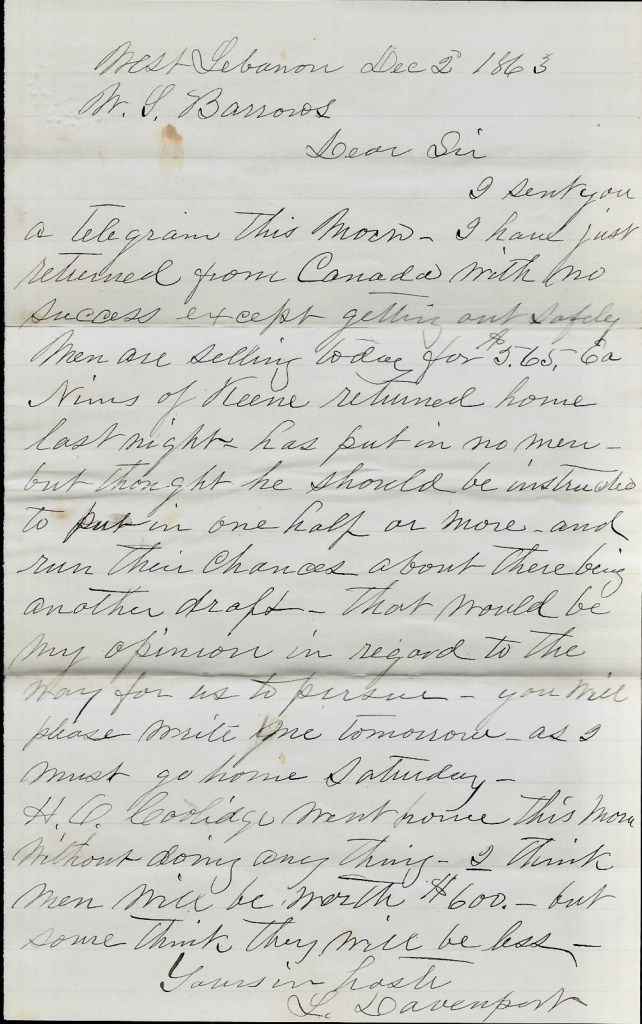 West Lebanon Dec 2 1863
W. S. Barrows
Dear Sir
I sent you
a telegram this Morn - I have just
returned from Canada with no
success except getting out safely
Men are selling today for $5.65. Ea
Nims of Keene returned home
last night - has put in no men -
but thought he should be instructed
to put in one half or more - and
run their chances about there being
another draft - that would be
my opinion in regard to the
way for us to persue - you will
please write me tomorrow - as I
must go home Saturday -
H. O. Coolidge went home this Morn
without doing any thing - I think
men will be worth $600. - but
some think they will be less -
Yours in haste
L. Davenport